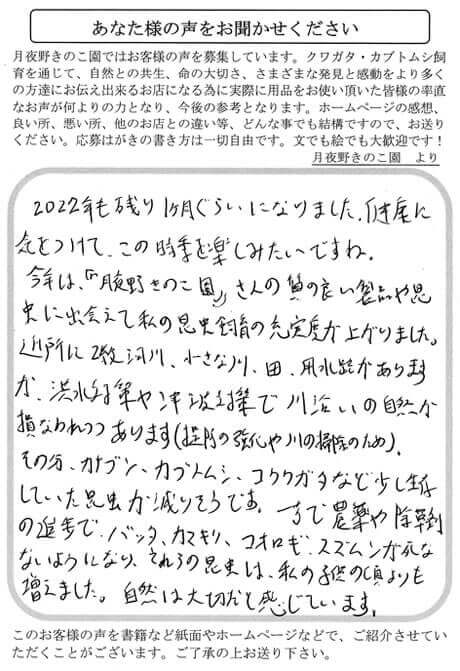 あなた様の声をお聞かせください
月夜野きのこ園ではお客様の声を募集しています。クワガタ・カブトムシ飼
育を通じて、自然との共生、命の大切さ、さまざまな発見と感動をより多く
の方達にお伝え出来るお店になる為に実際に用品をお使い頂いた皆様の率直
なお声が何よりの力となり、今後の参考となります。ホームページの感想、
良い所、悪い所、他のお店との違い等、どんな事でも結構ですので、お送り
ください。応募はがきの書き方は一切自由です。文でも絵でも大歓迎です！
月夜野きのこ園　より
2022年も残り1ヶ月ぐらいになりました。健康に
気をつけて、この時季を楽しみたいですね。
今年は、「月夜野きのこ園」さんの質の良い製品や昆
虫に出会えて私の昆虫飼育の充実度が上がりました。
近所に2級河川、小さな川、田、用水路があります
が、洪水対策や津波対策で川沿いの自然が
損なわれつつあります(堤防の強化や川の掃除のため)。
その分、カナブン、カブトムシ、コクワガタなど少し生存
していた昆虫が減りそうです。一方で農薬や除草剤
の進歩で、バッタ、カマキリ、コオロギ、スズムシが死な
ないようになり、それらの昆虫は、私の子供の頃よりも
増えました。自然は大切だと感じています。
このお客様の声を書籍など紙面やホームページなどで、ご紹介させてい
ただくことがございます。ご了承の上お送り下さい。